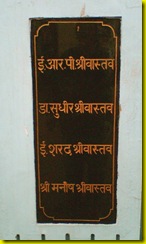 इं.आर.पी श्रीवास्तव
डा.सुधीर श्रीवास्तव
इं.शरद श्रीवास्तव
श्री मनीष श्रीवास्तव